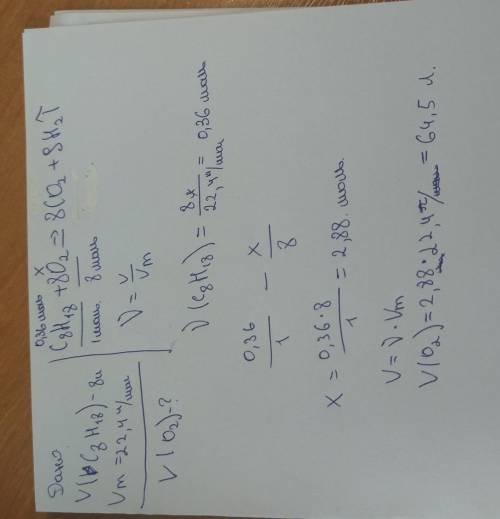 Дано
V(C8H18) - 8л
Vm = 22,4 л/моль
V(O2) - ?
0,36 моль x
C8H18 + 8O2 = 8CO2 + 8H2↑
1 моль 8 моль
ν = V/Vm
ν(C8H18) = 8л/22,4 л/моль = 0,36 моль
0,36/1 — x/8
x = 0,36·8/1 = 2,88 моль.
V = ν · Vm
V(O2) = 2,88 · 22,4 л/моль = 64,5 л.